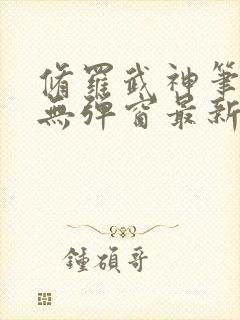 脩羅武神筆
無彈窗最新
鍾碩哥